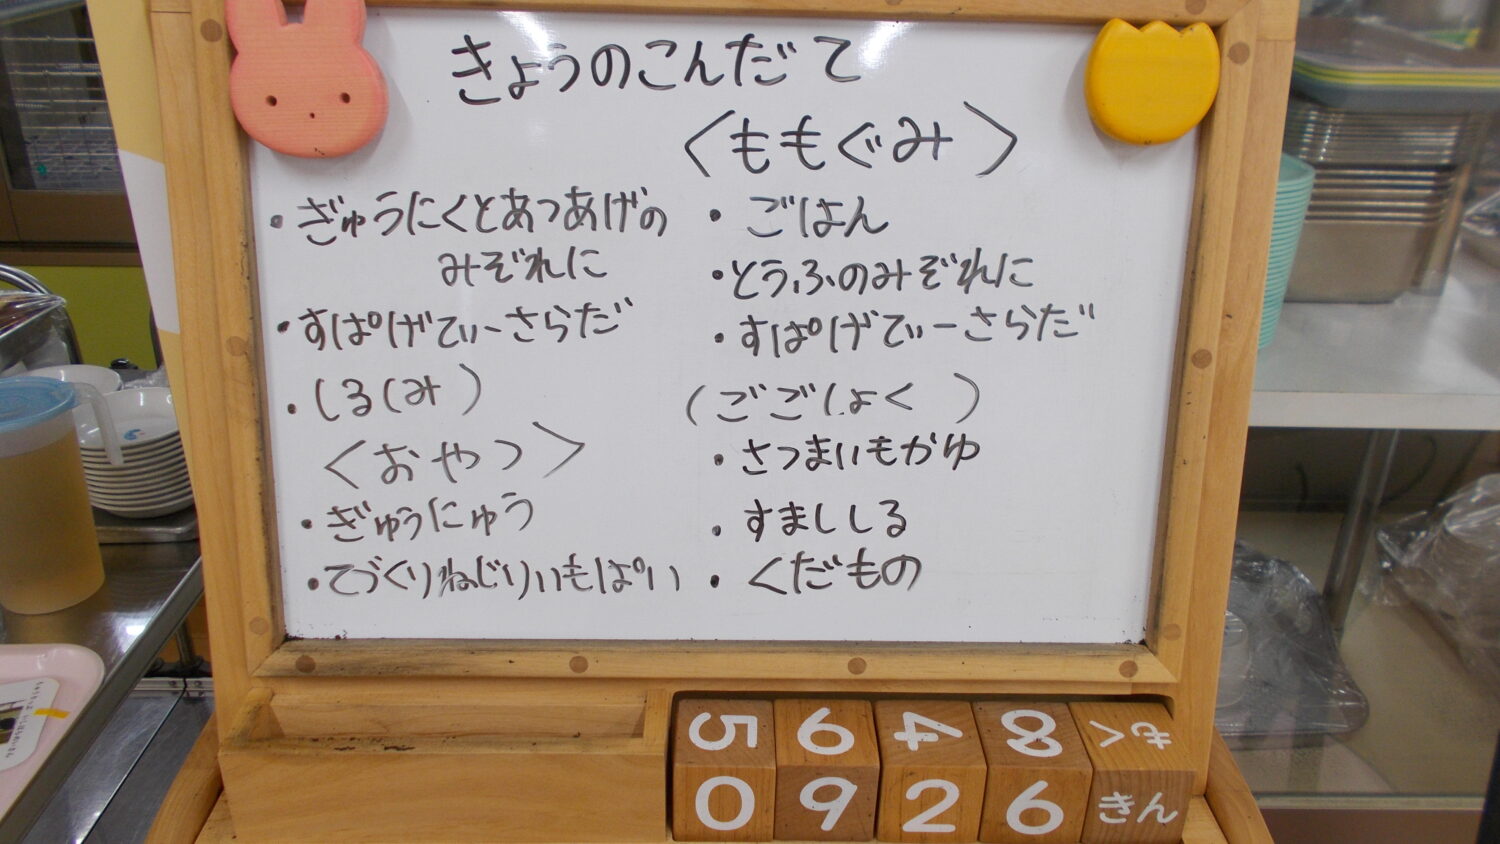 きょうのこんだて
・ぎゅうにくとあつあげの
みぞれに
・すぱげてぃーさらだ
・しる(み)
<おやつ>
・ぎゅうにゅう
・てづくりねじりいもぱい
<ももぐみ>
・ごはん
・とうふのみぞれに
・すぱげてぃーさらだ
(ごごしょく)
・さつまいもがゆ
・すましじる
・くだもの
5 6 4 8 もく
0 9 2 6 きん